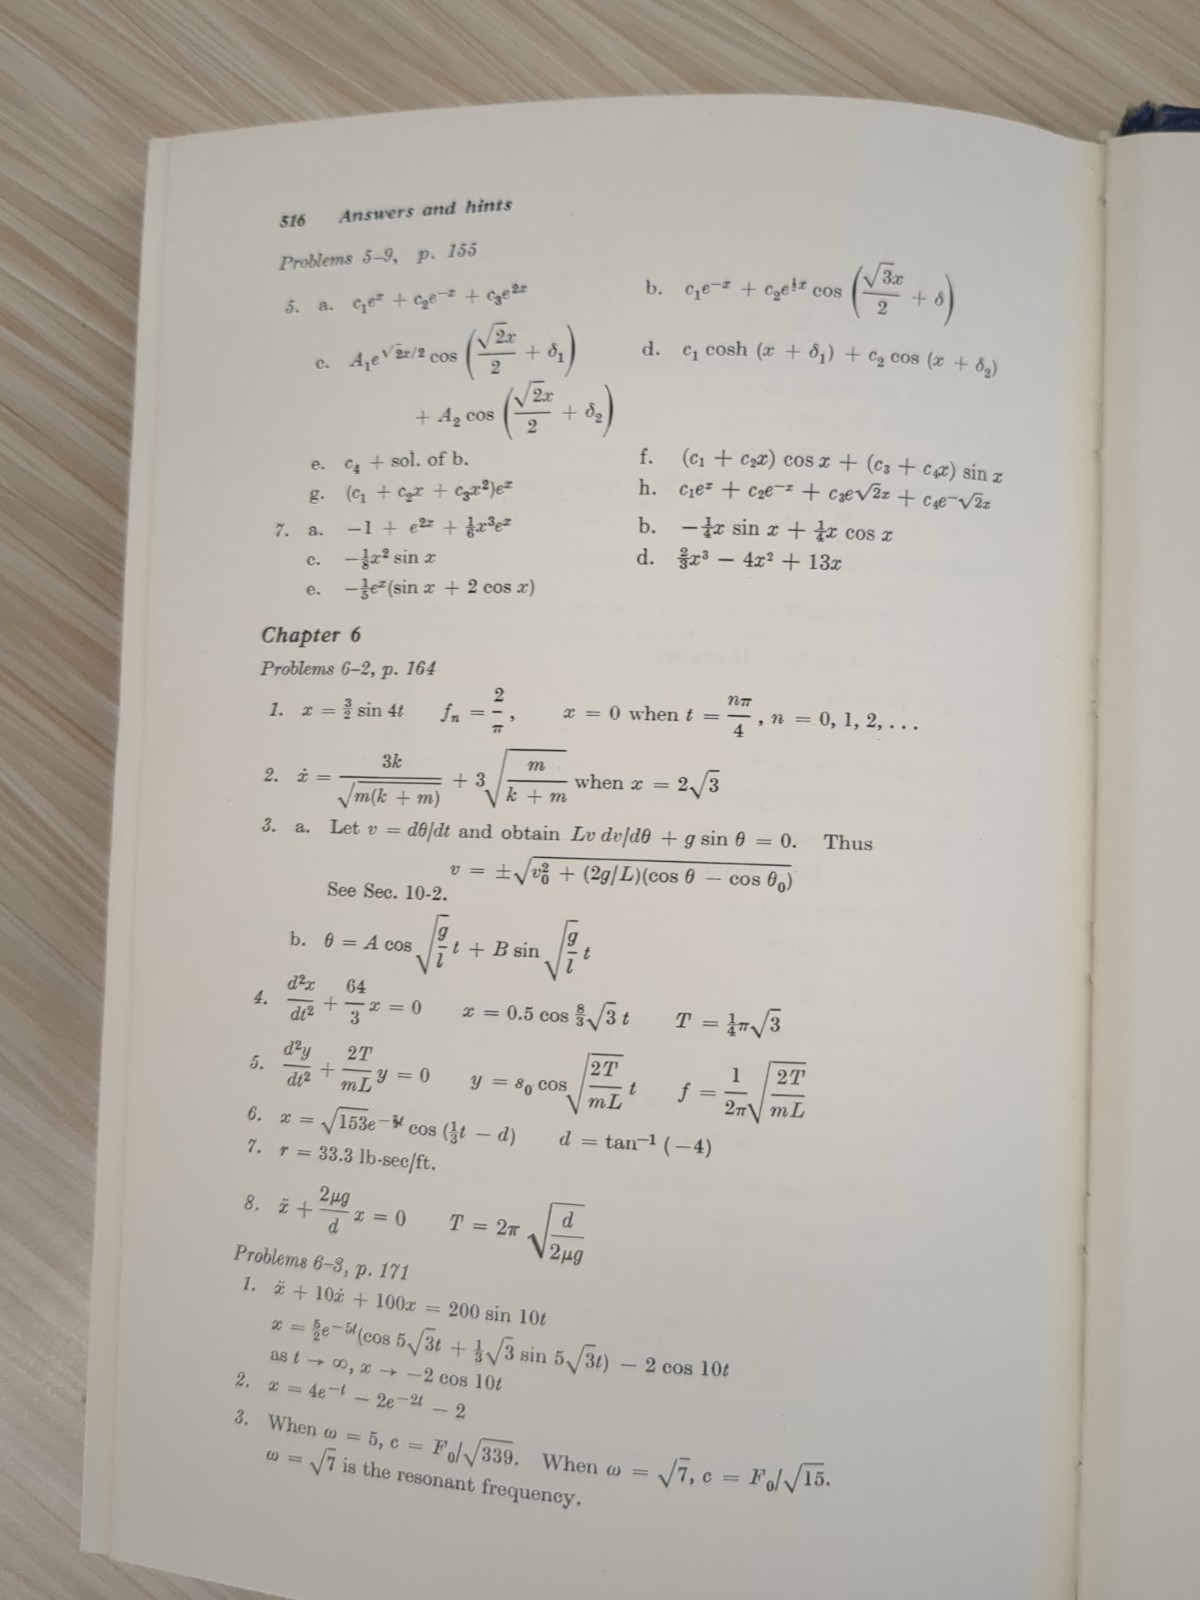 516 Answers and hints
Problems 5–9, p. 155
5. a. c₁eˣ + c₂e⁻ˣ + c₃e²ˣ b. c₁e⁻ˣ + c₂e^(½x) cos (√3x/2 + δ)
c. A₁e^(√2x/2) cos (√2x/2 + δ₁) d. c₁ cosh (x + δ₁) + c₂ cos (x + δ₂)
+ A₂ cos (√2x/2 + δ₂)
e. c₄ + sol. of b. f. (c₁ + c₂x) cos x + (c₃ + c₄x) sin x
g. (c₁ + c₂x + c₃x²)eˣ h. c₁eˣ + c₂e⁻ˣ + c₃e√2x + c₄e−√2x
7. a. −1 + e²ˣ + ⅙x³eˣ b. −¼x sin x + ¼x cos x
c. −⅛x² sin x d. ⅔x³ − 4x² + 13x
e. −⅕eˣ(sin x + 2 cos x)
Chapter 6
Problems 6–2, p. 164
1. x = 3/2 sin 4t fₙ = 2/π, x = 0 when t = nπ/4, n = 0, 1, 2, . . .
2. ẋ = 3k/√(m(k + m)) + 3√(m/(k + m)) when x = 2√3
3. a. Let v = dθ/dt and obtain Lv dv/dθ + g sin θ = 0. Thus
v = ±√(v₀² + (2g/L)(cos θ − cos θ₀))
See Sec. 10-2.
b. θ = A cos √(g/l) t + B sin √(g/l) t
4. d²x/dt² + 64/3 x = 0 x = 0.5 cos 8/3 √3 t T = ¼π√3
5. d²y/dt² + 2T/mL y = 0 y = s₀ cos √(2T/mL) t f = 1/2π √(2T/mL)
6. x = √153e cos (⅓t − d) d = tan⁻¹ (−4)
7. r = 33.3 lb-sec/ft.
8. ẍ + 2μg/d x = 0 T = 2π √(d/2μg)
Problems 6–3, p. 171
1. ẍ + 10ẋ + 100x = 200 sin 10t
x = 5/2 e⁻⁵ᵗ(cos 5√3t + ⅓√3 sin 5√3t) − 2 cos 10t
as t → ∞, x → −2 cos 10t
2. x = 4e⁻ᵗ − 2e⁻²ᵗ − 2
3. When ω = 5, c = F₀/√339. When ω = √7, c = F₀/√15.
ω = √7 is the resonant frequency.